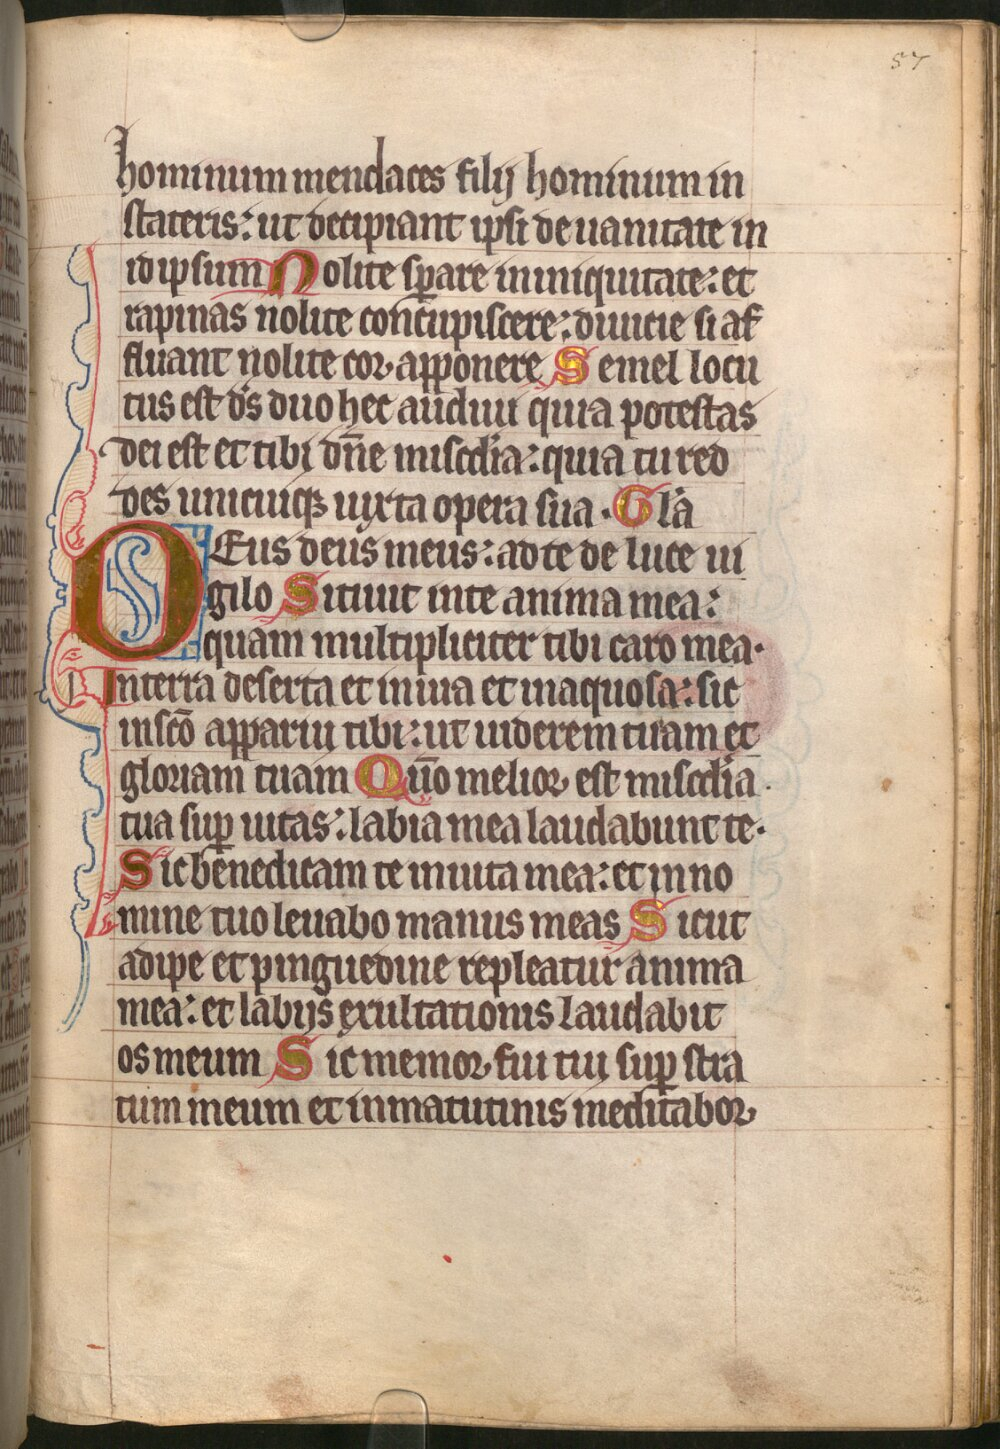 57
hominum mendaces filij hominum in
stateris: ut decipiant ipsi de uanitate in
idipsum Nolite sp̲are in iniquitate: et
rapinas nolite concupiscere: diuicie si af
fluant nolite cor apponere Semel locu
tus est d̄s duo hec audiui quia potestas
dei est et tibi dn̄e miscd̄ia: quia tu red
des unicuiqꝫ iuxta opera sua · Gl̄a
DEus deus meus: ad te de luce ui
gilo Sitiuit in te anima mea:
quam multipliciter tibi caro mea·
In terra deserta et inuia et inaquosa: sic
in sc̄o apparui tibi: ut uiderem tuam et
gloriam tuam Qūo melior est miscd̄ia
tua suꝑ uitas: labia mea laudabunt te·
Sic benedicam te in uita mea: et in no
mine tuo leuabo manus meas Sicut
adipe et pinguedine repleatur anima
mea: et labijs exultationis laudabit
os meum Sic memor fui tui suꝑ stra
tum meum et in matutinis meditabor